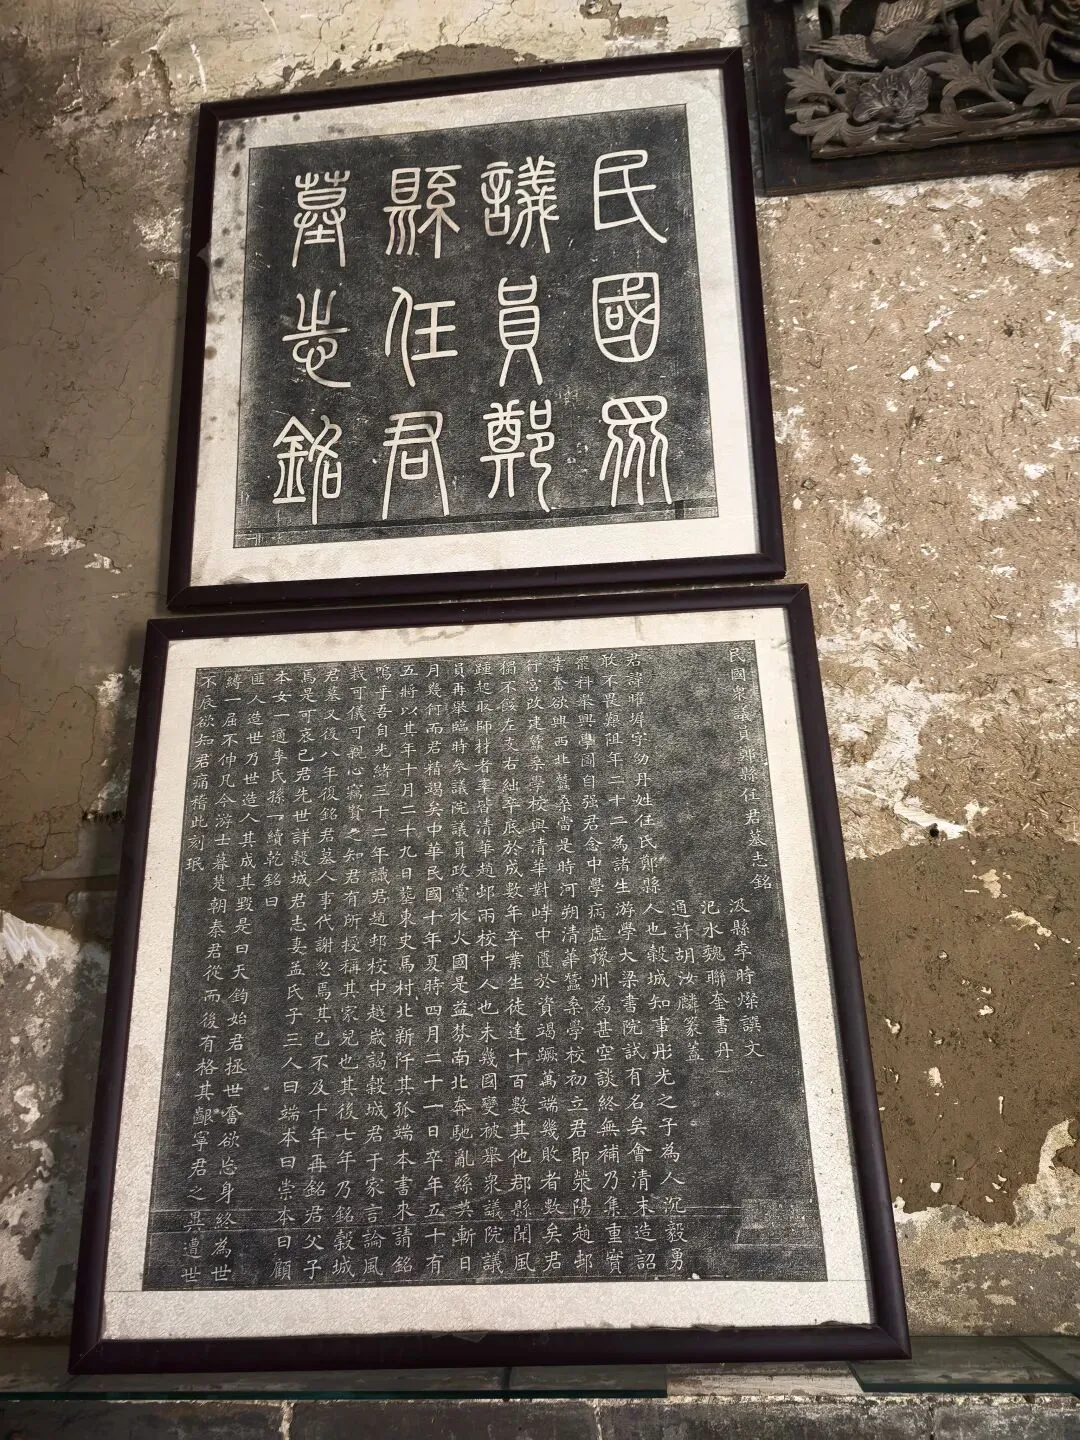 民國眾
議員鄭
縣任君
墓志銘
民國眾議員鄭縣任君墓志銘
汲縣李時燦譔文
汜水魏聯奎書丹
通許胡汝麟篆蓋
君諱曜墀字幼丹姓任氏鄭縣人也穀城知事彤光之子為人沉毅勇
敢不畏艱阻年二十二為諸生游學大梁書院試有名矣會清末造詔
罷科舉興學圖自強君念中學病虛豫州為甚空談終無補乃集重實
業奮欲興西北蠶桑當是時河朔清華蠶桑學校初立君即滎陽趙邨
行宮改建蠶桑學校與清華對峙中匱於資竭蹶萬端幾敗者數矣君
搰不餒左支右絀卒底於成數年卒業生徒達十百數其他郡縣聞風
踵起取師材者率皆清華趙邨兩校中人也未幾國變被舉眾議院議
員再舉臨時參議院議員政黨水火國是益棼南北奔馳亂絲莫漸日
月幾何而君精竭矣中華民國十年夏時四月二十一日卒年五十有
五將以其年十月二十九日墓東史馬村北新阡其孤端本書來請銘
嗚乎吾自光緒三十二年識君趙邨校中越歲謁穀城君于家言論風
裁可儀可親心竊賢之知君有所授稱其家兒也其後七年乃銘穀城
君墓又後八年復銘君墓人事代謝忽焉其已不及十年再銘君父子
焉是可哀已君先世詳穀城君志妻孟氏子三人曰端本曰崇本曰顧
本女一適李氏孫一續乾銘曰
匪人造世乃世造人其成其毀是曰天鈞始君拯世奮欲忘身終為世
縛一屈不伸凡今游士暮楚朝秦君從而後有格其齦寧君之異遭世
不辰欲知君痛稽此刻珉